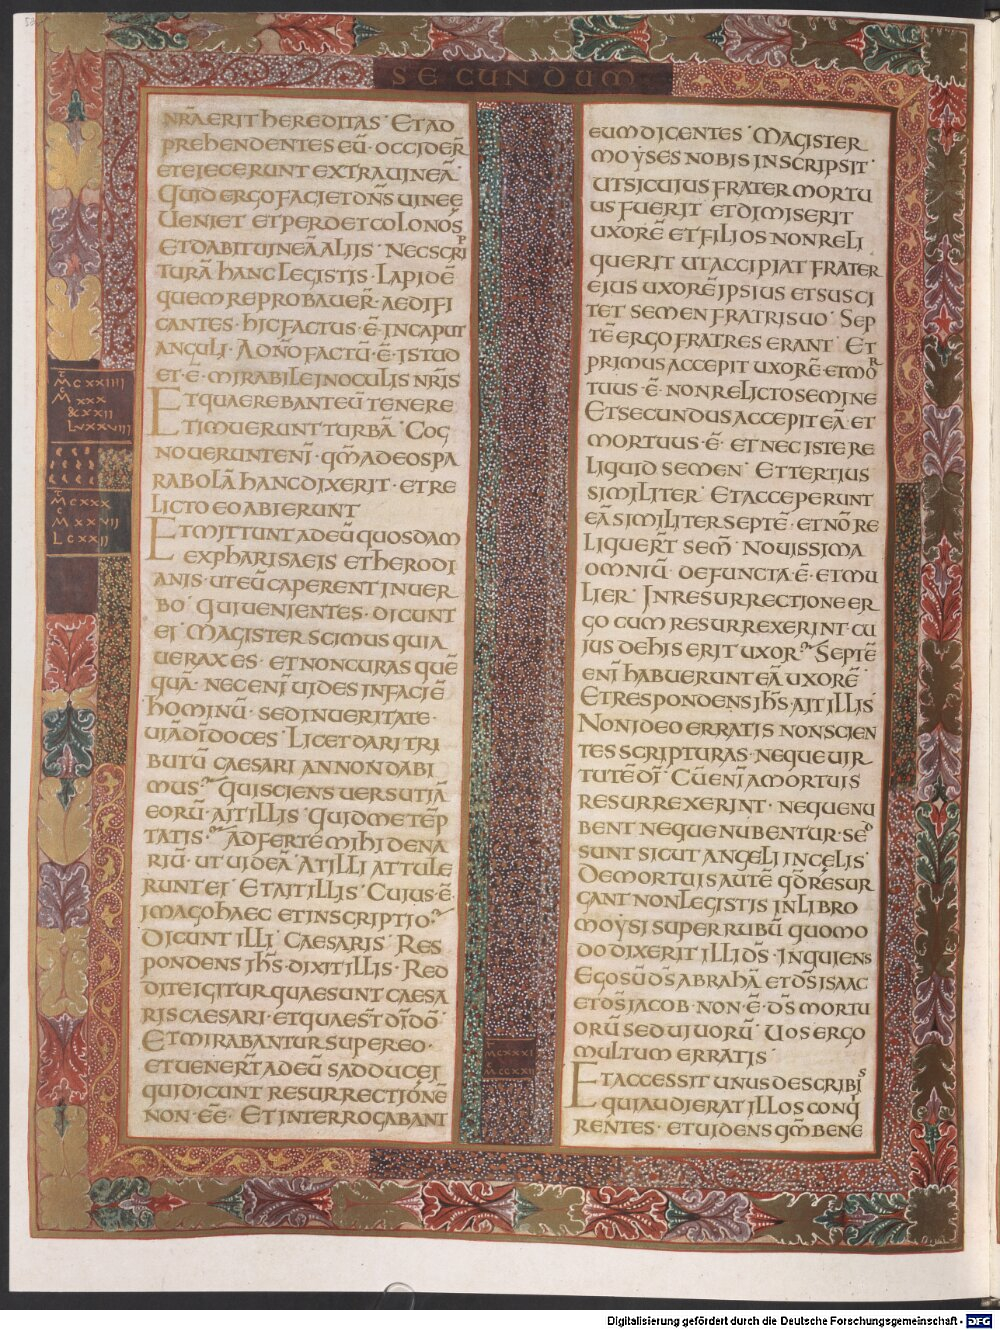 SECUNDUM
NR̄A ERIT HEREDITAS· ET AD
PREHENDENTES EŪ· OCCIDER̄
ET EIECERUNT EXTRA UINEĀ·
QUID ERGO FACIET DN̄S UINEE
UENIET ET PERDET COLONOS·
ET DABIT UINEĀ ALIIS· NEC SCRIP
TURĀ HANC LEGISTIS· LAPIDĒ
QUEM REPROBAUER̄· AEDIFI
CANTES· HIC FACTUS· Ē· IN CAPUT
ANGULI· A DN̄O FACTŪ· Ē· ISTUD
ET· Ē· MIRABILE IN OCULIS NR̄IS
ET QUAEREBANT EŪ TENERE
ET IMUERUNT TURBĀ· COG
NOUERUNT ENĪ· QM̄ AD EOS PA
RABOLĀ HANC DIXERIT· ET RE
LICTO EO ABIERUNT
ET MITTUNT AD EŪ QUOSDAM
EX PHARISAEIS ET HERODI
ANIS· UT EŪ CAPERENT IN UER
BO· QUI UENIENTES· DICUNT
EI· MAGISTER SCIMUS QUIA
UERAX ES· ET NON CURAS QUĒ
QUĀ· NEC ENĪ UIDES IN FACIĒ
HOMINŪ· SED IN UERITATE·
UIĀ DĪ DOCES· LICET DARI TRI
BUTŪ CAESARI AN NON DABI
MUS· QUI SCIENS UERSUTIĀ
EORŪ· AIT ILLIS· QUID ME TEP̄
TATIS· ADFERTE MIHI DENA
RIŪ· UT UIDEĀ· AT ILLI ATTULE
RUNT EI· ET AIT ILLIS· CUIUS· Ē·
IMAGO HAEC ET INSCRIPTIO·
DICUNT ILLI· CAESARIS· RES
PONDENS IH̄S· DIXIT ILLIS· RED
DITE IGITUR QUAE SUNT CAESA
RIS CAESARI· ET QUAE ST̄ DĪ DŌ·
ET MIRABANTUR SUPER EO·
ET UENER̄T AD EŪ SADDUCEI
QUI DICUNT RESURRECTIONĒ
NON· EĒ· ET INTERROGABANT
EUM DICENTES· MAGISTER
MOYSES NOBIS INSCRIPSIT·
UT SI CUIUS FRATER MORTU
US FUERIT· ET DIMISERIT
UXORĒ ET FILIOS NON RELI
QUERIT UT ACCIPIAT FRATER
EIUS UXORĒ IPSIUS ET SUSCI
TET SEMEN FRATRI SUO· SEP
TĒ ERGO FRATRES ERANT· ET
PRIMUS ACCEPIT UXORĒ· ET MOR
TUUS· Ē· NON RELICTO SEMINE
ET SECUNDUS ACCEPIT EĀ· ET
MORTUUS· Ē· ET NEC ISTE RE
LIQUID SEMEN· ET TERTIUS
SIMILITER· ET ACCEPERUNT
EĀ SIMILITER SEPTĒ· ET NŌ RE
LIQUER̄T SEM̄· NOUISSIMA
OMNIŪ· DEFUNCTA· Ē· ET MU
LIER· IN RESURRECTIONE ER
GO CUM RESURREXERINT· CU
IUS DE HIS ERIT UXOR· SEPTĒ
ENĪ HABUERUNT EĀ UXORĒ·
ET RESPONDENS IH̄S· AIT ILLIS·
NON IDEO ERRATIS NON SCIEN
TES SCRIPTURAS· NEQUE UIR
TUTĒ DĪ· CŪ ENĪ A MORTUIS
RESURREXERINT· NEQUE NU
BENT NEQUE NUBENTUR· SED
SUNT SICUT ANGELI IN CĘLIS·
DE MORTUIS AUTĒ QD̄ RESUR
GANT NON LEGISTIS IN LIBRO
MOYSI SUPER RUBŪ QUOMO
DO DIXERIT ILLI DS̄· INQUIENS
EGO SŪ DS̄ ABRAHĀ ET DS̄ ISAAC
ET DS̄ IACOB· NON· Ē· DS̄ MORTU
ORŪ SED UIUORŪ· UOS ERGO
MULTUM ERRATIS·
ET ACCESSIT UNUS DE SCRIBIS
QUI AUDIERAT ILLOS CONQI
RENTES· ET UIDENS QM̄ BENE
Digitalisierung gefördert durch die Deutsche Forschungsgemeinschaft - DFG